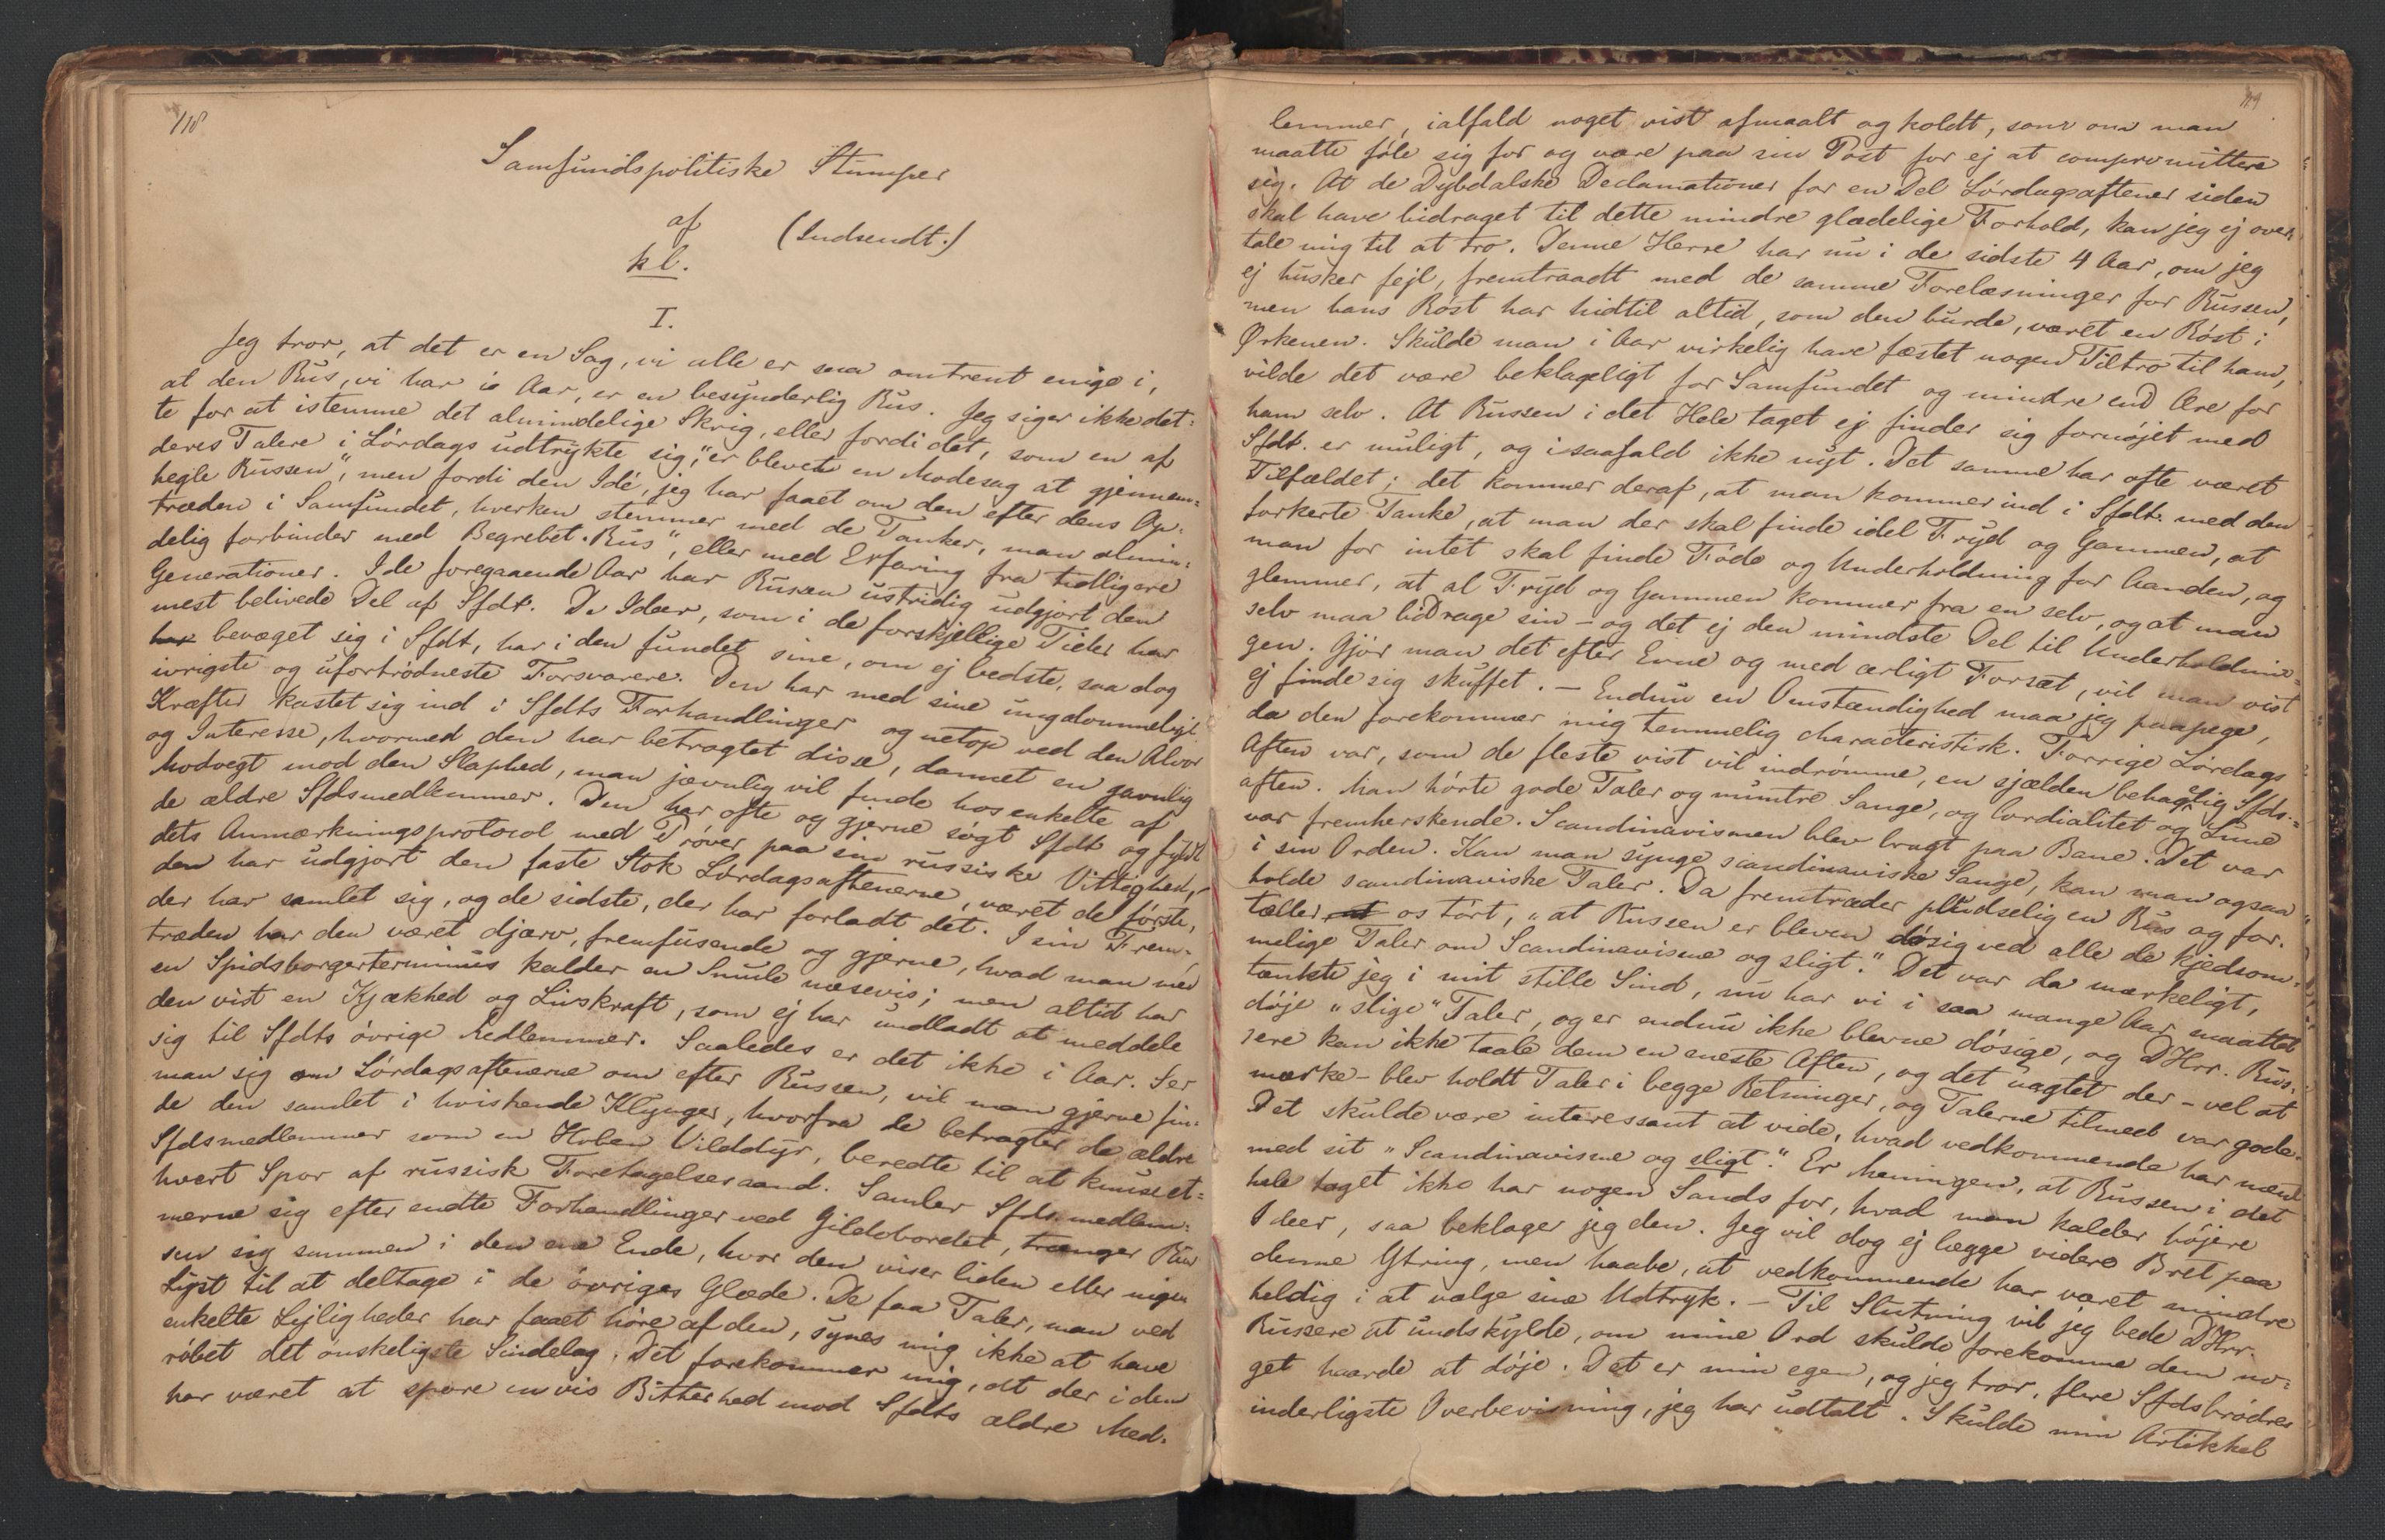 118
Samfundspolitiske Stumper
af (Indsendt.)
kl.
I.
Jeg tror, at det er en Sag, vi alle er saa omtrent enige i,
at den Rus, vi har i Aar, er en besynderlig Rus. Jeg siger ikke det-
te for at istemme det almindelige Skrig, eller fordi det, som en af
deres Talere i Lørdags udtrykte sig, "er blevet en Modesag at gjennem-
hegle Russen", men fordi den Idé, jeg har faaet om den efter dens Op-
træden i Samfundet, hverken stemmer med de Tanker, man almin-
delig forbinder med Begrebet "Rus", eller med Erfaring fra tidligere
Generationer. I de foregaaende Aar har Russen ustridig udgjort den
mest belivede Del af Sfdt. De Ideer, som i de forskjellige Tider har
har bevæget sig i Sfdt, har i den fundet sine, om ej bedste, saa dog
ivrigste og ufortrødneste Forsvarere. Den har med sine ungdommelige
Kræfter kastet sig ind i Sfdts Forhandlinger og netop ved den Alvor
og Interesse, hvormed den har betragtet disse, dannet en gavnlig
Modvegt mod den Slaphed, man jævnlig vil finde hos enkelte af
de ældre Sfdsmedlemmer. Den har ofte og gjerne søgt Sfdt og fyldt
dets Anmærkningsprotocol med Prøver paa sin russiske Vittighed,
den har udgjort den faste Stok Lørdagsaftenerne, været de første,
der har samlet sig, og de sidste, der har forladt det. I sin Frem-
træden har den været djærv, fremfusende og gjerne, hvad man med
en Spidsborgerterminus kalder en Smule næsevis; men altid har
den vist en Kjækhed og Livskraft, som ej har undladt at meddele
sig til Sfdts øvrige Medlemmer. Saaledes er det ikke i Aar. Ser
man sig om Lørdagsaftenerne om efter Russen, vil man gjerne fin-
de den samlet i hviskende Klynger, hvorfra de betragter de ældre
Sfdsmedlemmer som en Hoben Vilddyr, beredte til at knuse et-
hvert Spor af russisk Foretagelsesaand. Samler Sfdsmedlem-
merne sig efter endte Forhandlinger ved Gildebordet, trænger Rus
sen sig sammen i den ene Ende, hvor den viser liden eller ingen
Lyst til at deltage i de øvriges Glæde. De faa Taler, man ved
enkelte Lejligheder har faaet høre af den, synes mig ikke at have
røbet det ønskeligste Sindelag. Det forekommer mig, at der i den
har været at spore en vis Bitterhed mod Sfdts ældre Med-
119
lemmer, ialfald noget vist afmaalt og koldt, som om man
maatte føle sig for og være paa sin Post for ej at compromittere
sig. At de Dybdalske Declamationer for en Del Lørdagsaftener siden
skal have bidraget til dette mindre glædelige Forhold, kan jeg ej over-
tale mig til at tro. Denne Herre har nu i de sidste 4 Aar, om jeg
ej husker fejl, fremtraadt med de samme Forelæsninger for Russen,
men hans Røst har hidtil altid, som den burde, været en Røst i
Ørkenen. Skulde man i Aar virkelig have fæstet nogen Tiltro til ham,
vilde det være beklageligt for Samfundet og mindre end Ære for
ham selv. At Russen i det Hele taget ej finder sig fornøjet med
Sfdt. er muligt, og i saafald ikke nyt. Det samme har ofte været
Tilfældet; det kommer deraf, at man kommer ind i Sfdt. med den
forkerte Tanke, at man der skal finde idel Fryd og Gammen, at
man for intet skal finde Føde og Underholdning for Aanden, og
glemmer, at al Fryd og Gammen kommer fra en selv, og at man
selv maa bidrage sin – og det ej den mindste Del til Underholdnin-
gen. Gjør man det efter Evne og med ærligt Forsæt, vil man vist
ej finde sig skuffet. – Endnu en Omstændighed maa jeg paapege,
da den forekommer mig temmelig characteristisk. Forrige Lørdags
Aften var, som de fleste vist vil indrømme, en sjælden behagelig Sfds-
aften. Man hørte gode Taler og muntre Sange, og Cordialitet og Lune
var fremherskende. Scandinavismen blev bragt paa Bane. Det var
i sin Orden. Kan man synge scandinaviske Sange, kan man ogsaa
holde scandinaviske Taler. Da fremtræder pludselig en Rus og for-
tæller at os tørt, "at Russen er bleven døsig ved alle de kjedsom-
melige Taler om Scandinavisme og sligt." Det var da mærkeligt,
tænkte jeg i mit stille Sind, nu har vi i saa mange Aar maattet
døje "slige" Taler, og er endnu ikke blevne døsige, og DHrr. Rus-
sere kan ikke taale dem en eneste Aften, og det uagtet der – vel at
mærke – blev holdt Taler i begge Retninger, og Talerne tilmed var gode.
Det skulde være interessant at vide, hvad vedkommende har ment
med sit "Scandinavisme og sligt." Er Meningen, at Russen i det
hele taget ikke har nogen Sands for, hvad man kalder højere
Ideer, saa beklager jeg den. Jeg vil dog ej lægge videre Bret paa
denne Ytring, men haabe, at vedkommende har været mindre
heldig i at vælge sine Udtryk. – Til Slutning vil jeg bede DHrr.
Russere at undskylde, om mine Ord skulde forekomme dem no-
get haarde at døje. Det er min egen, og jeg tror, flere Sfdsbrødres
inderligste Overbevisning, jeg har udtalt. Skulde min Artikkel